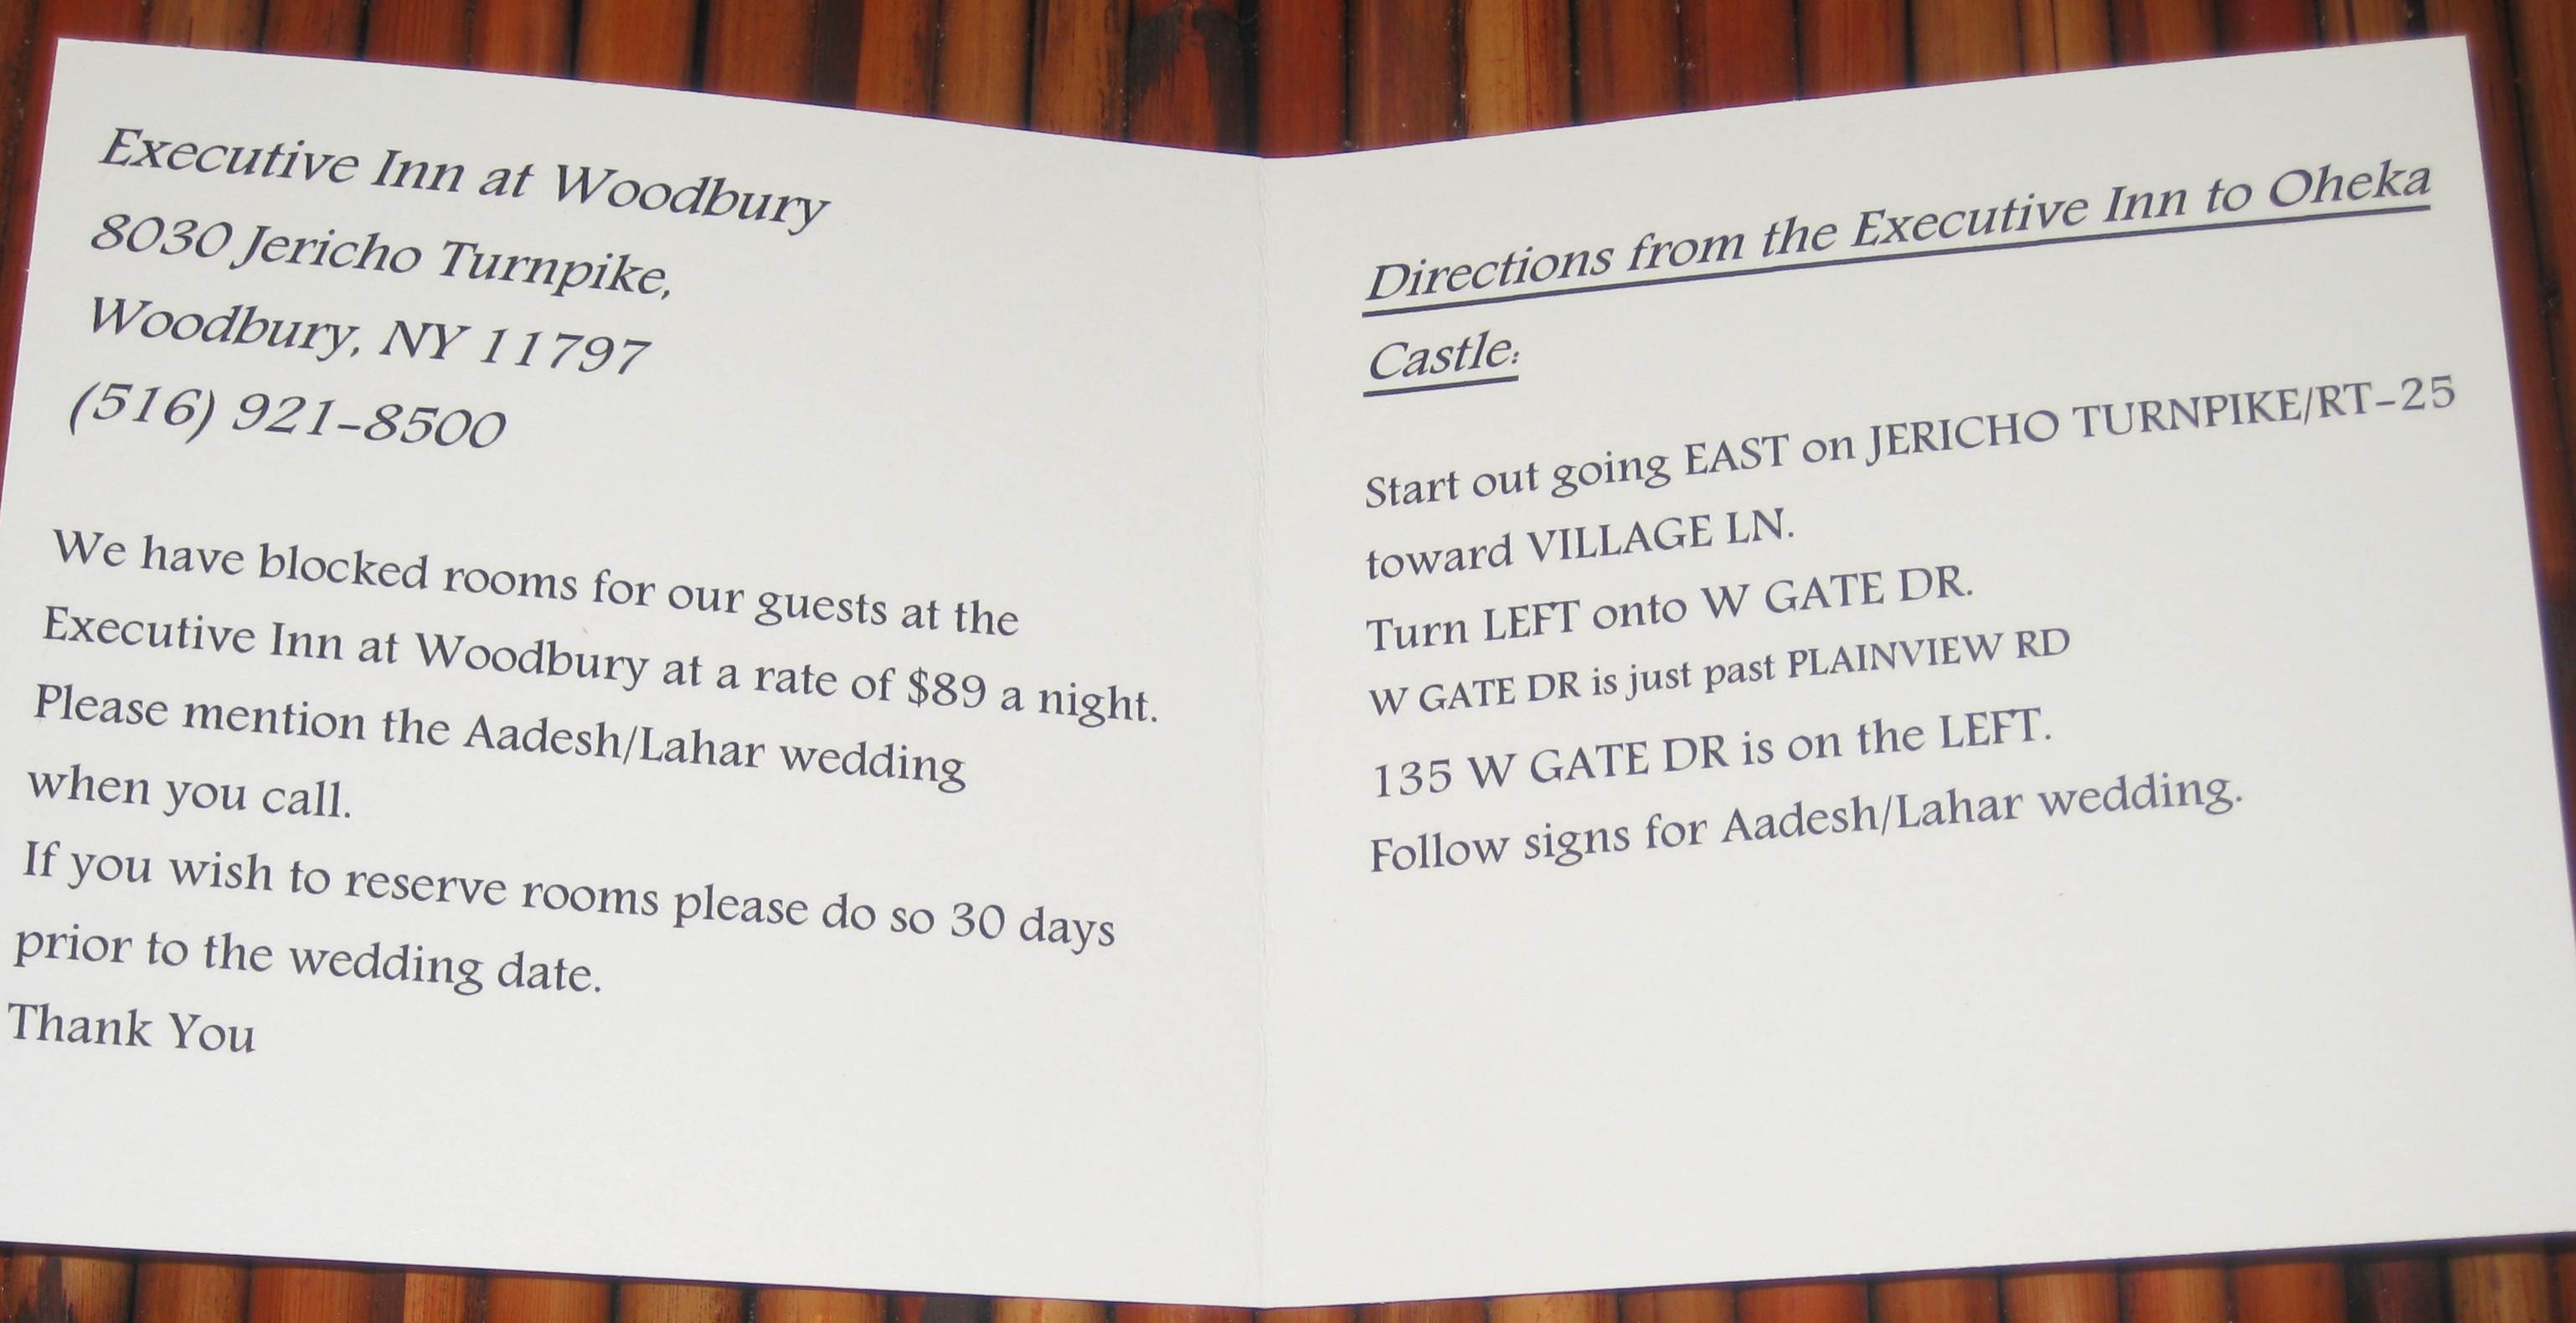 Executive Inn at Woodbury
8030 Jericho Turnpike,
Woodbury, NY 11797
(516) 921-8500
We have blocked rooms for our guests at the
Executive Inn at Woodbury at a rate of $89 a night.
Please mention the Aadesh/Lahar wedding
when you call.
If you wish to reserve rooms please do so 30 days
prior to the wedding date.
Thank You
Directions from the Executive Inn to Oheka
Castle:
Start out going EAST on JERICHO TURNPIKE/RT-25
toward VILLAGE LN.
Turn LEFT onto W GATE DR.
W GATE DR is just past PLAINVIEW RD
135 W GATE DR is on the LEFT.
Follow signs for Aadesh/Lahar wedding.